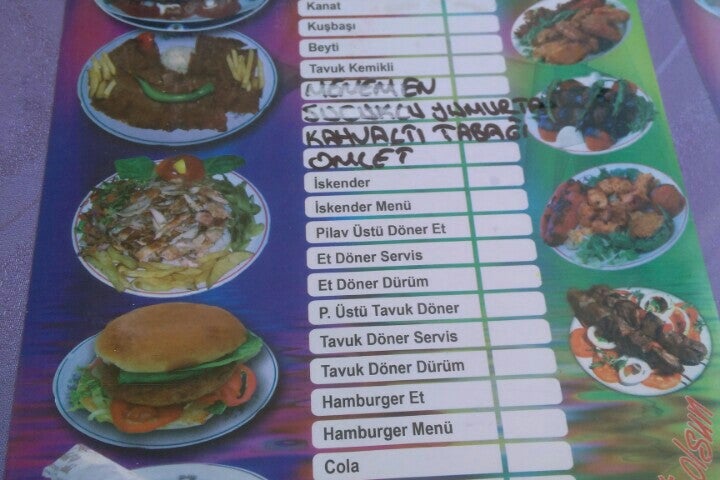 Kanat
Kuşbaşı
Beyti
Tavuk Kemikli
MENEMEN
SUCUKLU YUMURTA
KAHVALTI TABAĞI
OMLET
İskender
İskender Menü
Pilav Üstü Döner Et
Et Döner Servis
Et Döner Dürüm
P. Üstü Tavuk Döner
Tavuk Döner Servis
Tavuk Döner Dürüm
Hamburger Et
Hamburger Menü
Cola
olsun